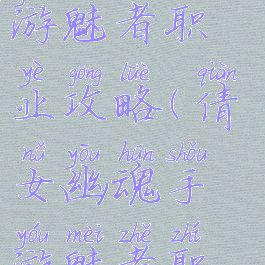 游魅者职
yè gōng lüè qiàn
业攻略(倩
nǚ yōu hún shǒu
女幽魂手
yóu mèi zhě zhí
游魅者职